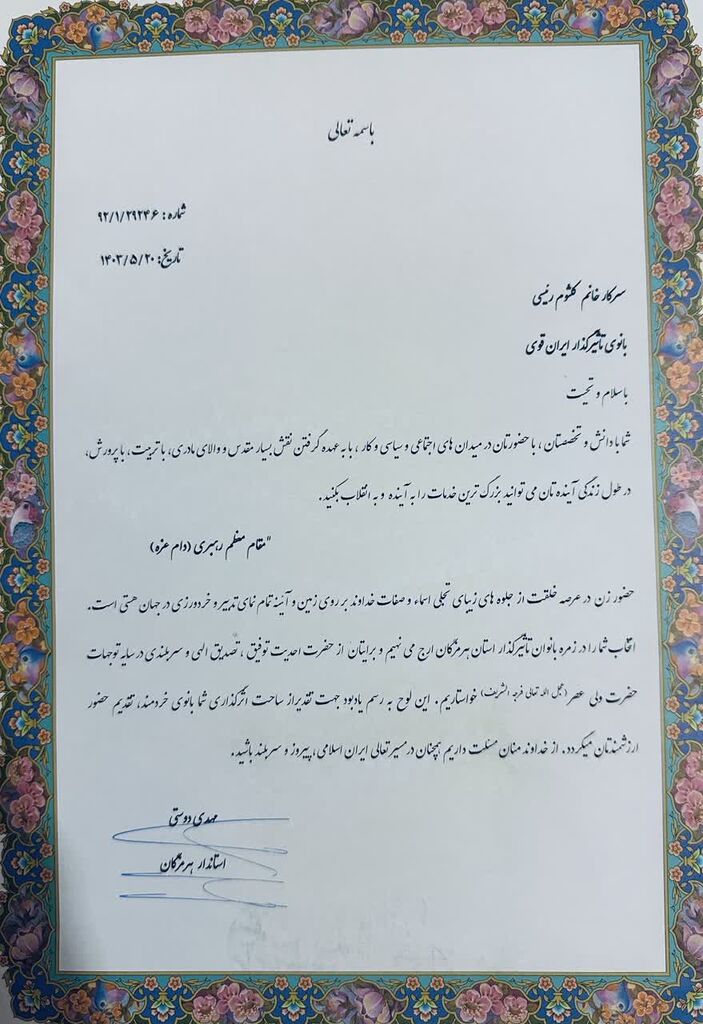 باسمه تعالی
شماره: ۹۲/۱/۲۹۲۴۶
تاریخ: ۱۴۰۳/۵/۲۰
سرکار خانم کلثوم رئیسی
بانوی تأثیرگذار ایران قوی
باسلام و تحیت
شما با دانش و تخصصتان ، با حضورتان در میدان های اجتماعی و سیاسی و کار ، با به عهده گرفتن نقش بسیار مقدس و والای مادری، با تربیت، با پرورش،
در طول زندگی آینده تان می توانید بزرگ ترین خدمات را به آینده و به انقلاب بکنید.
"مقام معظم رهبری (دام عزه)
حضور زن در عرصه خلقت از جلوه های زیبای تجلی اسماء و صفات خداوند بر روی زمین و آئینه تمام نمای تدبیر و خردورزی در جهان هستی است.
انتخاب شما را در زمره بانوان تأثیرگذار استان هرمزگان ارج می نهیم و برایتان از حضرت احدیت توفیق ، تصدیق الهی و سربلندی در سایه توجهات
حضرت ولی عصر (عجل الله تعالی فرجه الشریف) خواستاریم. این لوح به رسم یادبود جهت تقدیر از ساحت اثرگذاری شما بانوی خردمند، تقدیم حضور
ارزشمندتان میگردد. از خداوند منان مسئلت داریم همچنان در مسیر تعالی ایران اسلامی، پیروز و سربلند باشید.
مهدی دوستی
استاندار هرمزگان